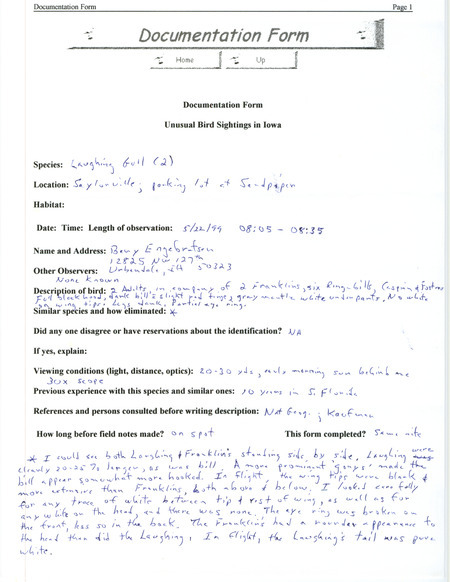 Documentation Form Page 1
Documentation Form
Home Up
Documentation Form
Unusual Bird Sightings in Iowa
Species: Laughing Gull (2)
Location: Saylorville, parking lot at Sandpiper
Habitat:
Date: Time: Length of observation: 5/22/99 08:05 - 08:35
Name and Address: Bery Engebretsen
12825 NW 127th
Other Observers: Urbandale, IA 50323
None Known
Description of bird: 2 Adults in company of 2 Franklins, six Ring-bills, Caspian & Fosters
Full black hood, dark bills slight red tinge, gray mantle white underparts, No white
on wing tips. Legs dark. Partial eye ring.
Similar species and how eliminated: *
Did any one disagree or have reservations about the identification? NA
If yes, explain:
Viewing conditions (light, distance, optics): 20-30 yds, early morning sun behind me
30X scope
Previous experience with this species and similar ones: 10 years in S. Florida
References and persons consulted before writing description: Nat Geog. ; Kaufman
How long before field notes made? on spot This form completed? Same nite
* I could see both Laughing & Franklin's standing side by side, Laughing were
clearly 20-25% larger, as was bill. A more prominent "gonys" made the
bill appear somewhat more hooked. In flight, the wing tips were black &
more extensive than Franklins, both above & below. I looked carefully
for any trace of white between tip & rest of wing, as well as for
any white on the head, and there was none. The eye ring was broken on
the front, less so in the back. The Franklins had a rounder appearance to
the head than did the Laughing. In flight, the Laughing's tail was pure
white.